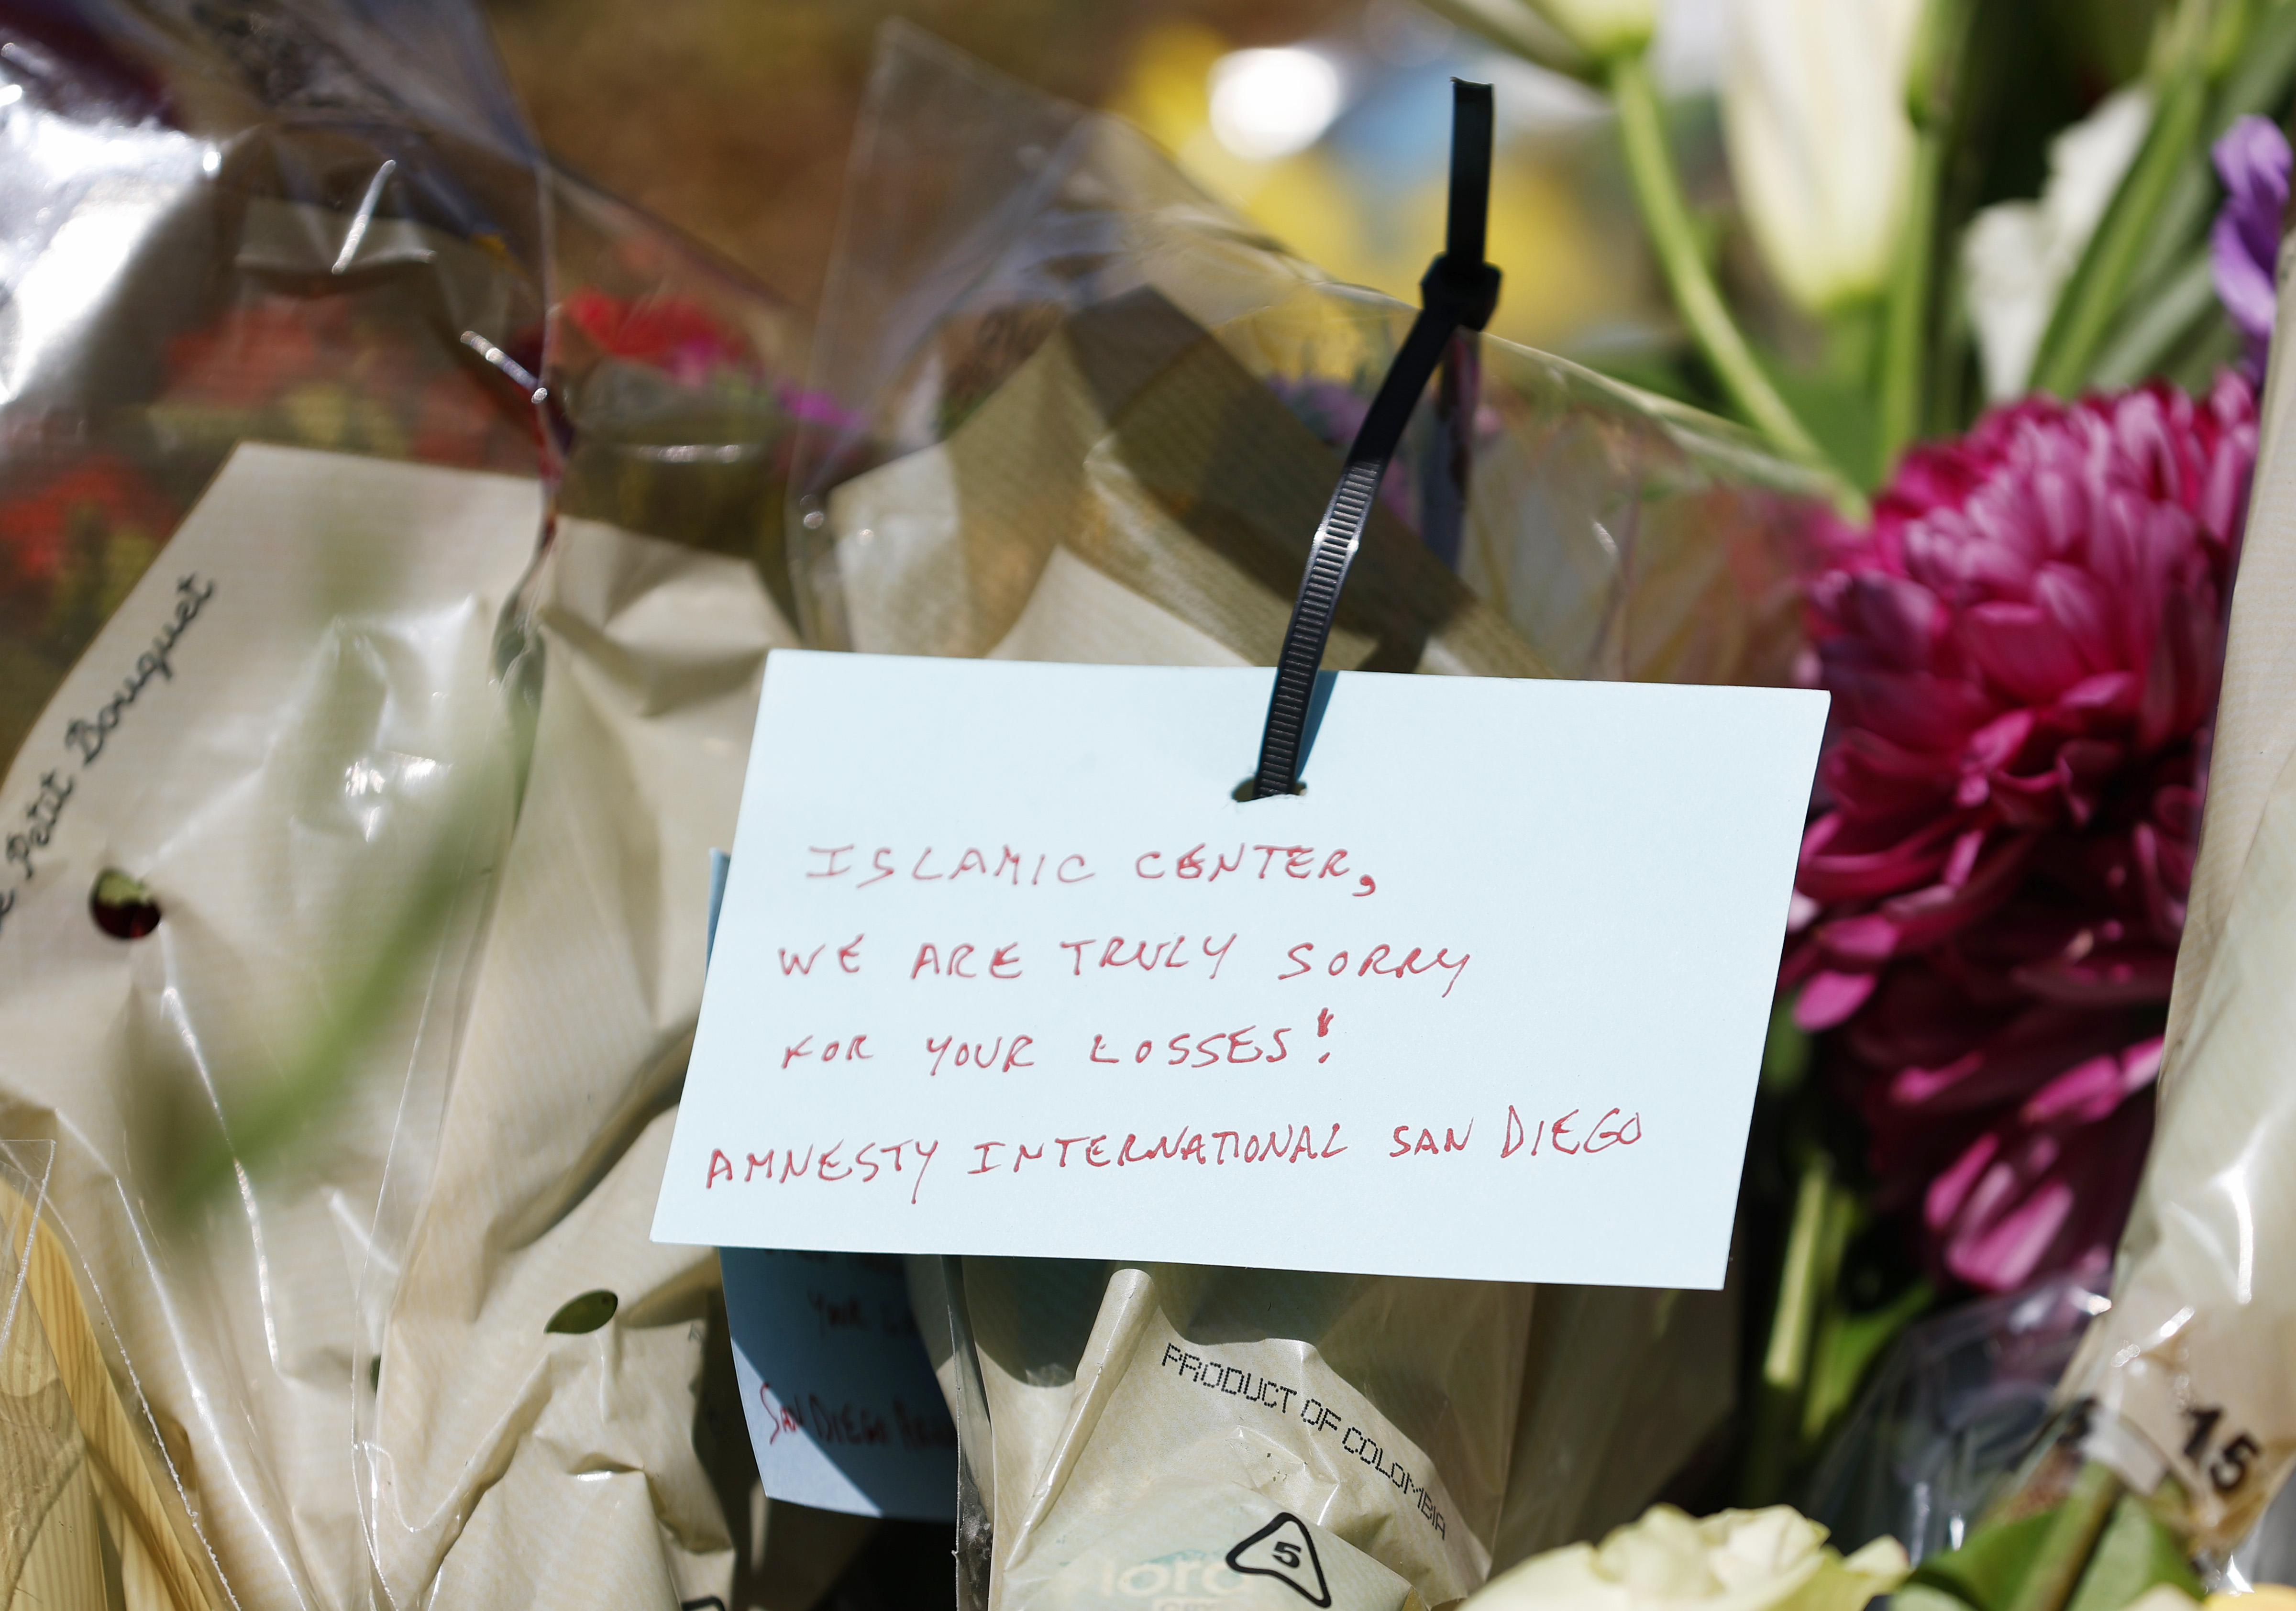 Petit Bouquet
ISLAMIC CENTER,
WE ARE TRULY SORRY
FOR YOUR LOSSES!
AMNESTY INTERNATIONAL SAN DIEGO
YOUR
SAN DIEGO
PRODUCT OF COLOMBIA
5
15